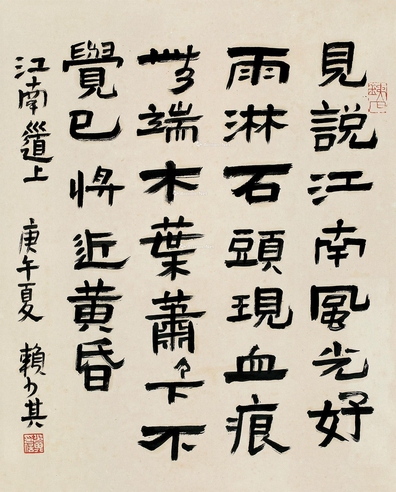 見說江南風光好
雨淋石頭現血痕
無端木葉蕭々下不
覺已將近黄昏
江南道上 庚午夏 賴少其